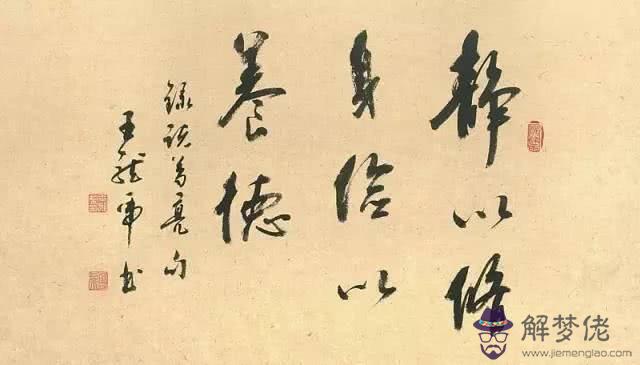 静以修
身俭以
養德
録诸葛亮句
王 书
解梦佬
www.jiemenglao.com